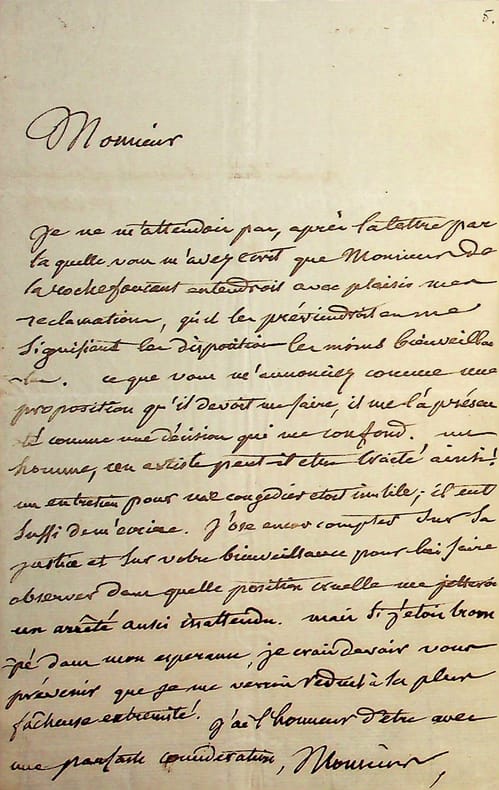 5.
Monsieur
Je ne m'attendois pas, après la lettre par
la quelle vous m'avez écrit que Monsieur De
la rochefoucaut entendroit avec plaisir mes
reclamations, qu'il les préviendroit en me
signifiant les dispositions les moins bienveillan
tes. ce que vous m'annonciez comme une
proposition qu'il devoit me faire, il me l'a présen
té comme une décision qui me confond. un
homme, un artiste peut-il etre traité ainsi!
un entretien pour me congédier etoit inutile; il eut
suffi de m'écrire. J'ose encor compter sur sa
justice et sur votre bienveillance pour lui faire
observer dans quelle position cruelle me jettera
un arrêté aussi inattendu. mais si j'etois trom
pé dans mon esperance, je crois devoir vous
prévenir que je me verrois réduit à la plus
fâcheuse extremité! j'ai l'honneur d'être avec
une parfaite consideration, Monsieur,